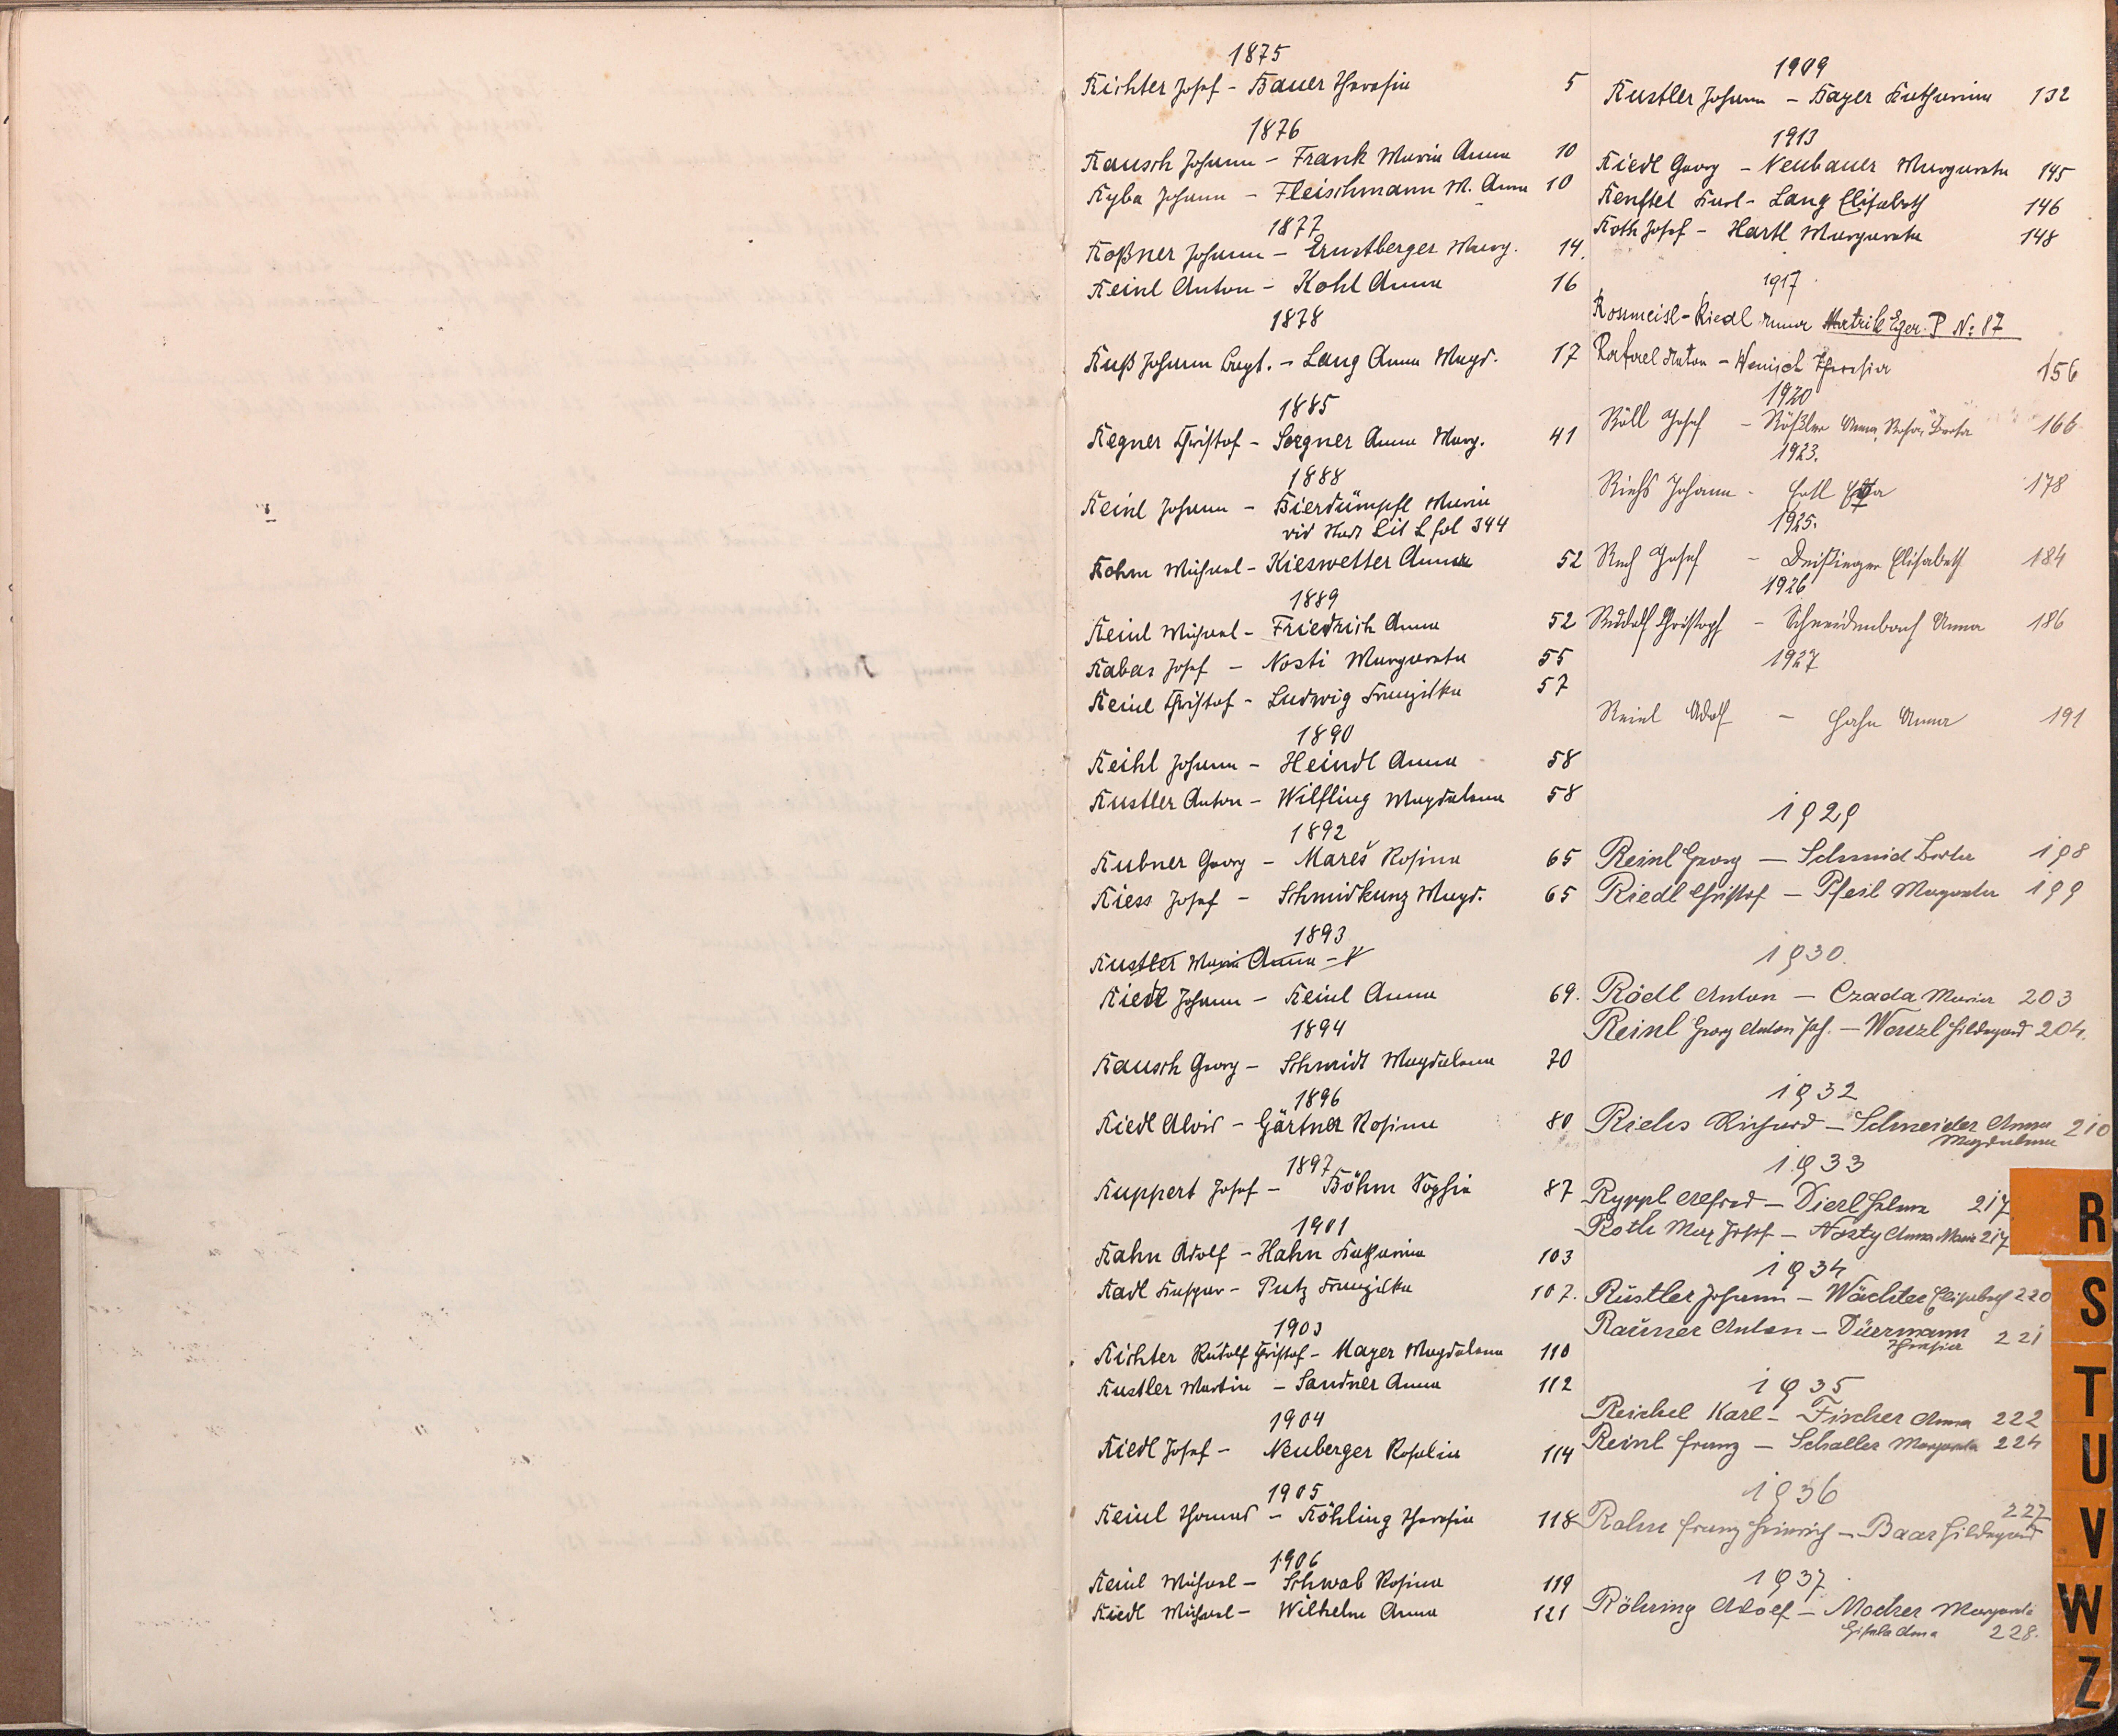 1875
Richter Josef - Bauer Theresia 5
1876
Rausch Johann - Frank Maria Anna 10
Ryba Johann - Fleischmann M. Anna 10
1877
Roßner Johann - Ernstberger Marg. 14.
Reinl Anton - Kohl Anna 16
1878
Ruß Johann - Lang Anna Magd. 17
1885
Regner Christof - Sergner Anna Marg. 41
1888
Reinl Johann - Bierdümpfl Maria
vid Stadt Lit L fol 344
Rohm Michael - Kieswetter Anna 52
1889
Reinl Michael - Friedrich Anna 52
Rabas Josef - Nosti Margareta 55
Reinl Christof - Ludwig Franziska 57
1890
Reihl Johann - Heindl Anna 58
Rustler Anton - Wilfling Magdalena 58
1892
Rubner Georg - Mareš Rosina 65
Riess Josef - Schmidkunz Magd. 65
1893
Rustler Maria Anna -
Riedl Johann - Reinl Anna 69.
1894
Rausch Georg - Schmidt Magdalena 70
1896
Riedl Alois - Gärtner Rosina 80
1897
Ruppert Josef - Böhm Sophia 87
1901
Rahn Adolf - Hahn Katharina 103
Radl Kaspar - Putz Franziska 107.
1903
Richter Rudolf Christof - Mayer Magdalena 110
Rustler Martin - Sandner Anna 112
1904
Riedl Josef - Neuberger Rosalia 114
1905
Reinl Thomas - Röhling Theresia 118
1906
Reinl Michael - Schwab Rosina 119
Riedl Michael - Wilhelm Anna 121
1909
Rustler Johann - Bayer Katharina 132
1913
Riedl Georg - Neubauer Margareta 145
Renftel Karl - Lang Elisabeth 146
Roth Josef - Hartl Margareta 148
1917
Rossmeisl - Riedl Anna Matrik Eger. P N: 87
Rafael Anton - Wenisch Theresia 156
1920
Röll Josef - Rößler Anna, Rosa, Berta 166
1923.
Riehs Johann - 178
1925.
Josef - Elisabeth 184
1926
Rudolf Christoph - Schneidenbach Anna 186
1927
Reinl Adolf - Hahn Anna 191
1929
Reinl Georg - Schmid Berta 198
Riedl Christof - Pfeil Margareta 199
1930.
Rödl Anton - Czada Maria 203
Reinl Georg Anton Jos. - Wenzl Hildegard 204.
1932
Riehs Richard - Schneider Anna 210
Magdalena
1933
Ryppl Alfred - Dierl Helene 217
Roth Max Josef - Nosty Anna Maria 217
1934
Rustler Johann - Wächter Elisabeth 220
Rauner Anton - Düermann 221
Theresia
1935
Reichel Karl - Fischer Anna 222
Reinl Franz - Schaller Margareta 224
1936
227
Rahm Franz Heinrich - Baar Hildegard
1937.
Röhring Adolf - Mocker Margareta
Gisela Anna 228.
R
S
T
U
V
W
Z